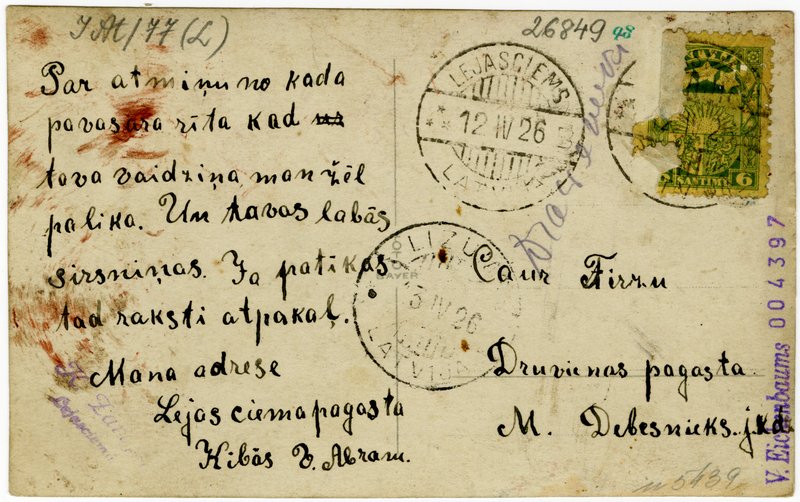 J At/77 (L)
26849 98
Par atmiņu no kada
pavasara rīta kad
tava vaidziņa man žēl
palika. Un tavas labās
sirsniņas. Ja patīkas
tad raksti atpakaļ.
Mana adrese
Lejas ciema pagasta
Kibās V. Abram.
LEJASCIEMS
12 IV 26
LATVIJA
LATVIJA
6 SANTIMI 6
LIZUMS
13 IV 26
LATVIJA
Caur Tirzu
Druvienas pagasta
M. Debesnieks. jkd.
V. Eichenbaums 004397
n 5439